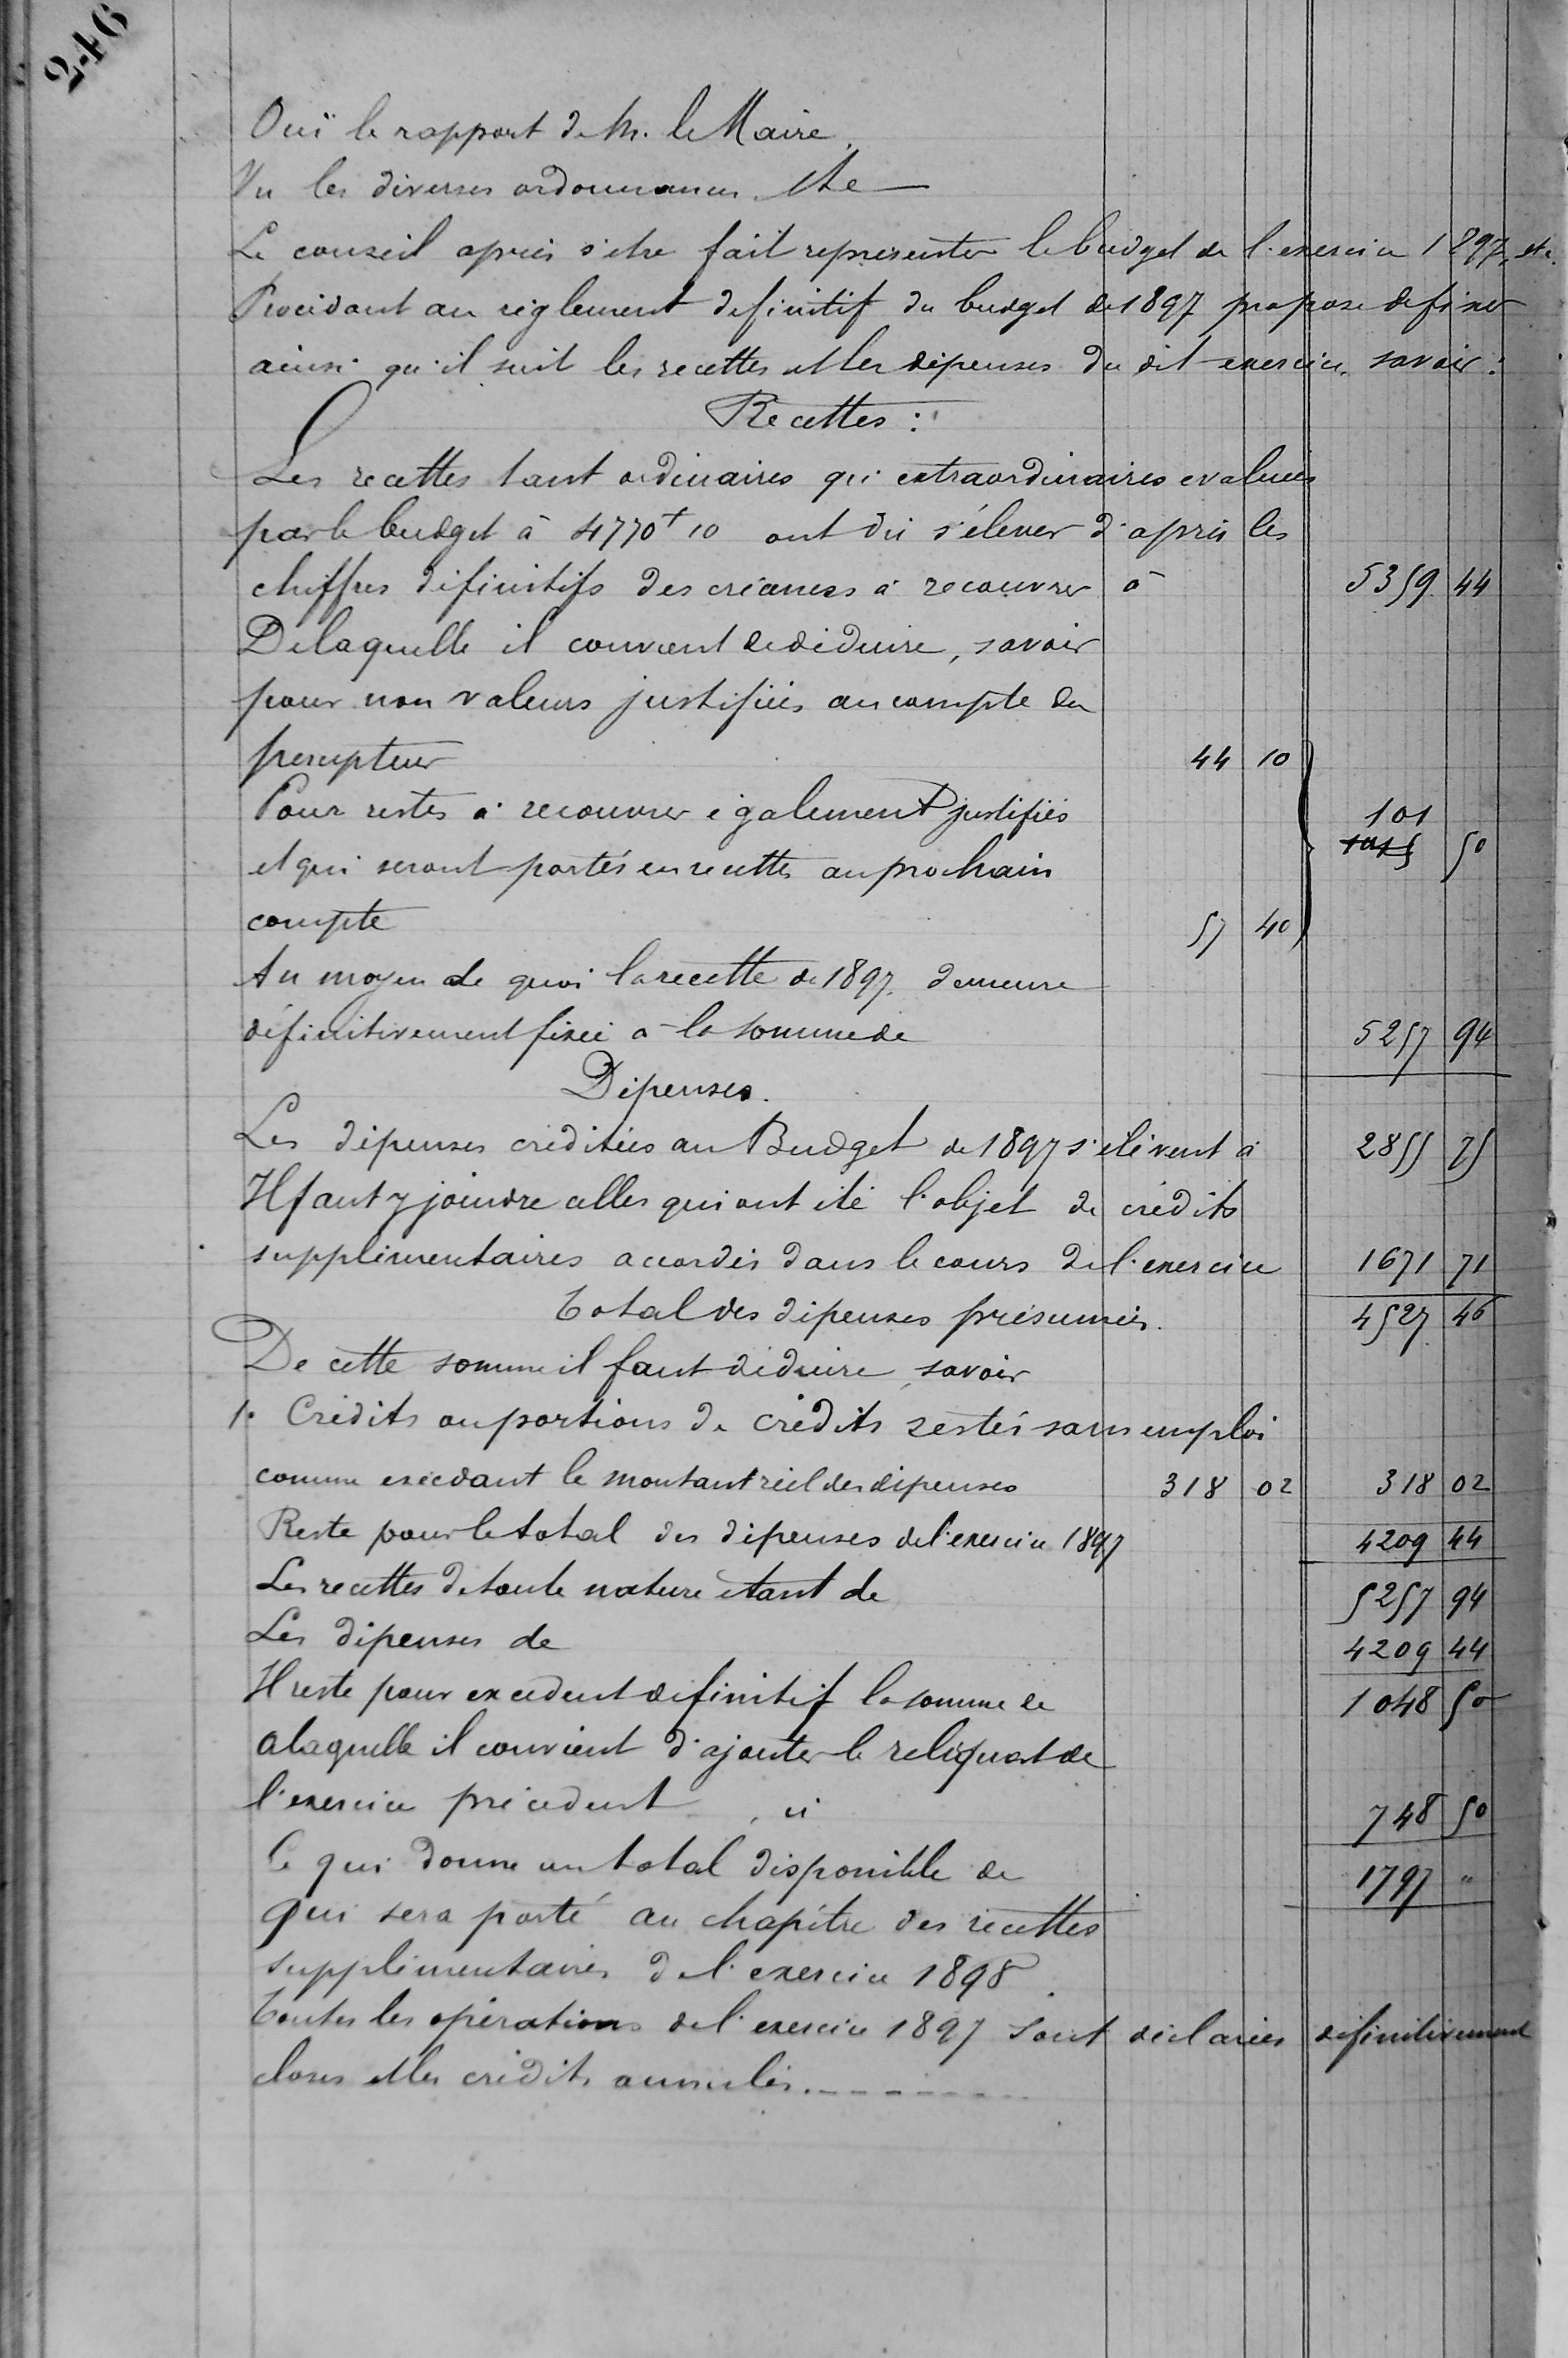 246
Ouï le rapport de M. le Maire.
Vu les diverses ordonnances etc
Le conseil après s'etre fait representer le budget de l'exercice 1897, etc.
Procédant au réglement definitif du budget de 1897 propose de fixer
ainsi qu'il suit les recettes et les dépenses du dit exercice, savoir :
Recettes :
Les recettes tant ordinaires qu'extraordinaires evaluées
par le budget à 4770f 10 ont dû s'élever d'après les
chiffres définitifs des créances à recouvrer à 5359 44
De laquelle il convient de déduire, savoir
pour non valeurs justifiées au compte du
percepteur 44 10
Pour restes à recouvrer également justifiés 101
et qui seront portés en recette au prochain 50
compte 57 40
Au moyen de quoi la recette de 1897 demeure
définitivement fixée à la somme de 5257 94
Dépenses.
Les dépenses créditées au Budget de 1897 s'élèvent à 2855 75
Il faut y joindre celles qui ont été l'objet de crédits
supplémentaires accordés dans le cours de l'exercice 1671 71
Total des dépenses présumées. 4527 46
De cette somme il faut déduire, savoir
1° Crédits ou portions de crédits restés sans emploi
comme excédant le montant réel des dépenses 318 02 318 02
Reste pour le total des dépenses de l'exercice 1897 4209 44
Les recettes de toute nature étant de 5257 94
Les dépenses de 4209 44
Il reste pour excedent definitif la somme de 1048 50
a laquelle il convient d'ajouter le reliquat de
l'exercice précédent, ci 748 50
Ce qui donne un total disponible de 1797 "
qui sera porté au chapitre des recettes
supplémentaires de l'exercice 1898.
Toutes les opérations de l'exercice 1897 sont déclarées définitivement
closes et les crédits annulés.